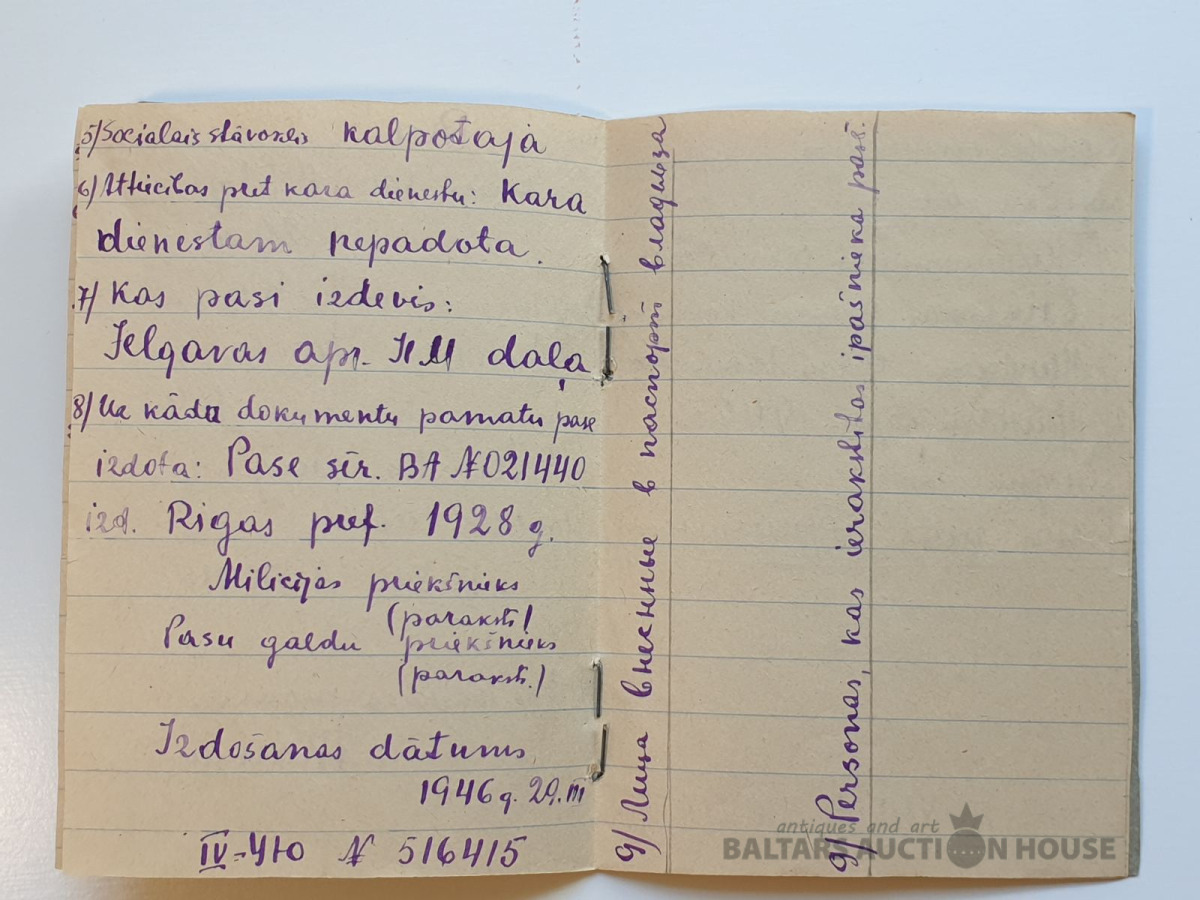 5/ Socialais stāvoklis kalpotaja
6/ Attiecības pret kara dienestu: Kara
dienestam nepadota.
7/ Kas pasi izdevis:
Jelgavas apr. IM daļa
8/ Uz kādu dokumentu pamatu pase
izdota: Pase sēr. BA № 021440
izd. Rigas pref. 1928 g.
Milicijas priekšnieks
(parakst.)
Pasu galdu priekšnieks
(parakst.)
Izdošanas dātums
1946 g. 29. III
IV-ЧЮ № 516415
9/ Лица внеснные в паспорт владельза
9/ Personas, kas ierakstītas ipašnieka pasē.
antiques and art
BALTARS AUCTION HOUSE